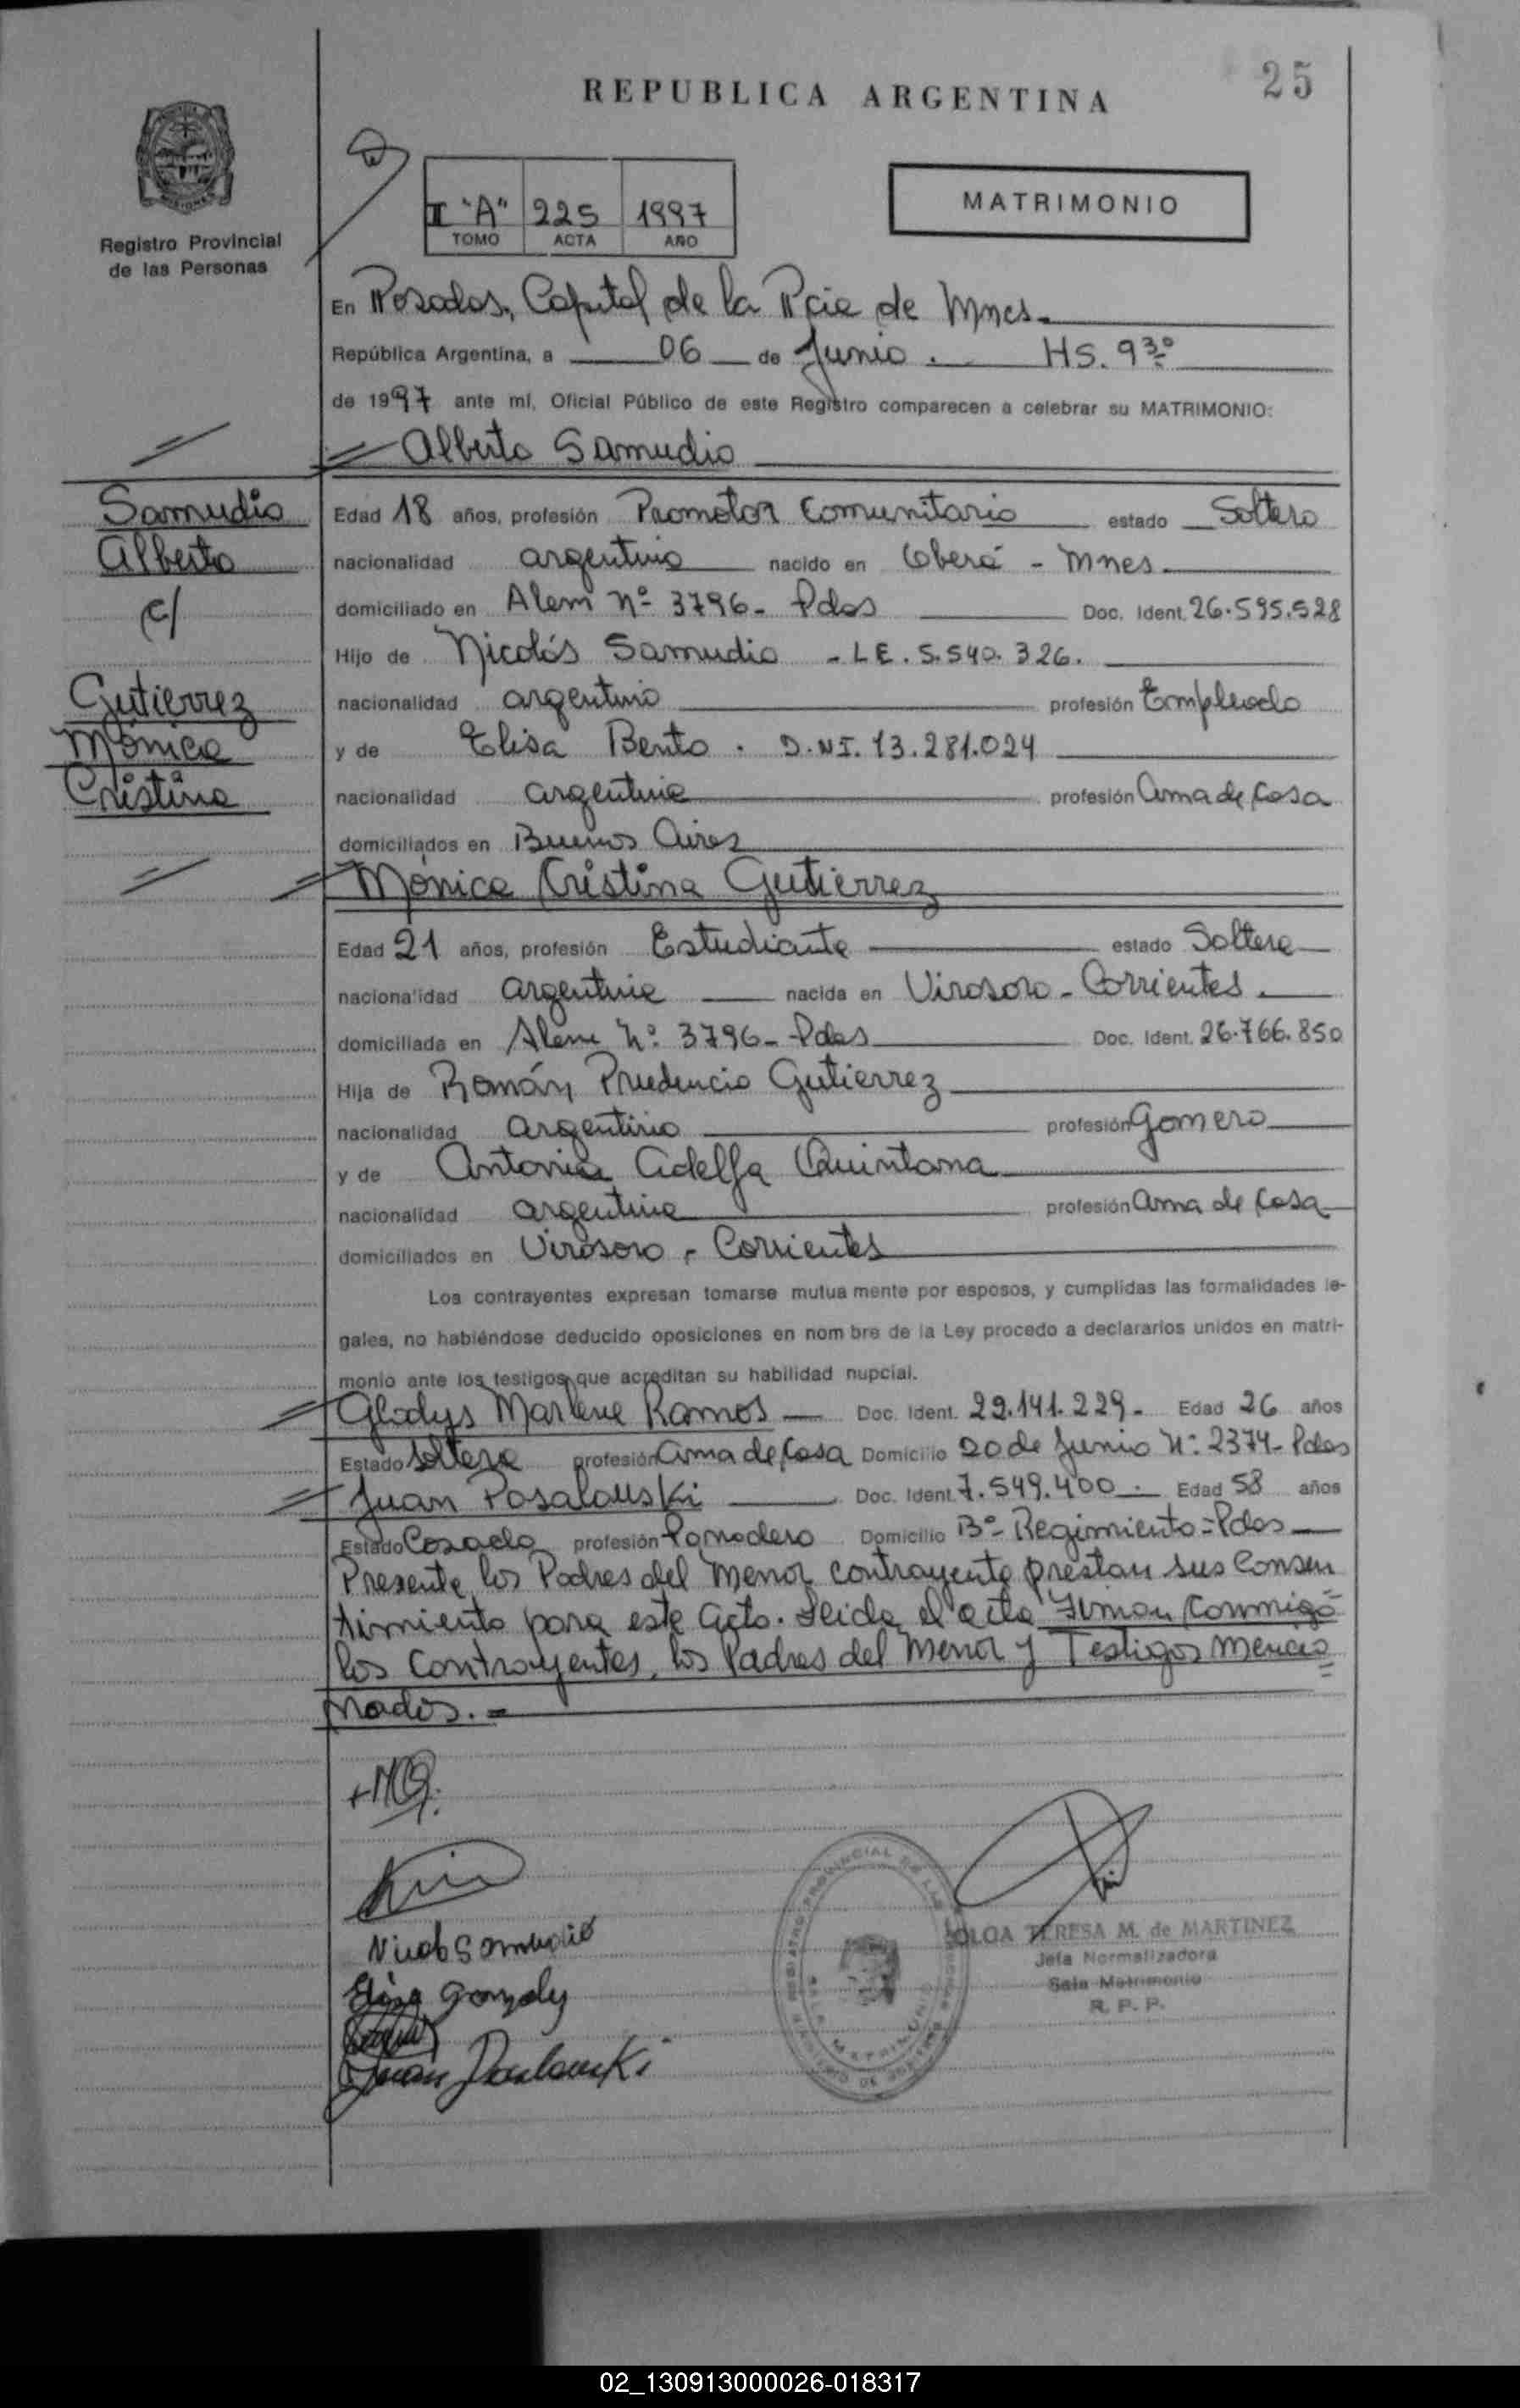 REPUBLICA ARGENTINA
25
Registro Provincial
de las Personas
II "A" 225 1997
TOMO ACTA AÑO
MATRIMONIO
En Posadas, Capital de la Pcia de Mnes.
República Argentina, a 06 de Junio. HS. 9 30
de 1997 ante mí, Oficial Público de este Registro comparecen a celebrar su MATRIMONIO:
Alberto Samudio
Samudio
Alberto
c/
Gutierrez
Mónica
Cristina
Edad 18 años, profesión Promotor Comunitario estado Soltero
nacionalidad argentino nacido en Oberá - Mnes.
domiciliado en Alem Nº 3796- Pdas Doc. Ident. 26.595.528
Hijo de Nicolás Samudio - L E. 5.540.326.
nacionalidad argentino profesión Empleado
y de Elisa Bento. D.NI. 13.281.024
nacionalidad argentina profesión Ama de Casa
domiciliados en Buenos Aires
Mónica Cristina Gutierrez
Edad 21 años, profesión Estudiante estado Soltera
nacionalidad argentina nacida en Virasoro - Corrientes.
domiciliada en Alem Nº 3796- Pdas Doc. Ident. 26.766.850
Hija de Román Prudencio Gutierrez
nacionalidad argentino profesión Gomero
y de Antonia Adelfa Quintana
nacionalidad argentina profesión Ama de Casa
domiciliados en Virasoro - Corrientes
Los contrayentes expresan tomarse mutua mente por esposos, y cumplidas las formalidades le-
gales, no habiéndose deducido oposiciones en nom bre de la Ley procedo a declararlos unidos en matri-
monio ante los testigos que acreditan su habilidad nupcial.
Gladys Marlene Ramos Doc. Ident. 22.141.229- Edad 26 años
Estado Soltera profesión Ama de Casa Domicilio 20 de Junio Nº 2374- Pdas
Juan Posalouski Doc. Ident. 7.549.400. Edad 58 años
Estado Casado profesión Panadero Domicilio Bº Regimiento - Pdas
Presente los Padres del Menor contrayente prestan sus Consen
timiento para este Acto. Leida el acta Firman Conmigo
los Contrayentes, los Padres del Menor y Testigos Mencio
nados.-
Elisa Gonzaly
OLGA TERESA M. de MARTINEZ
Jefa Normalizadora
Sala Matrimonio
R. P. P.
02_130913000026-018317